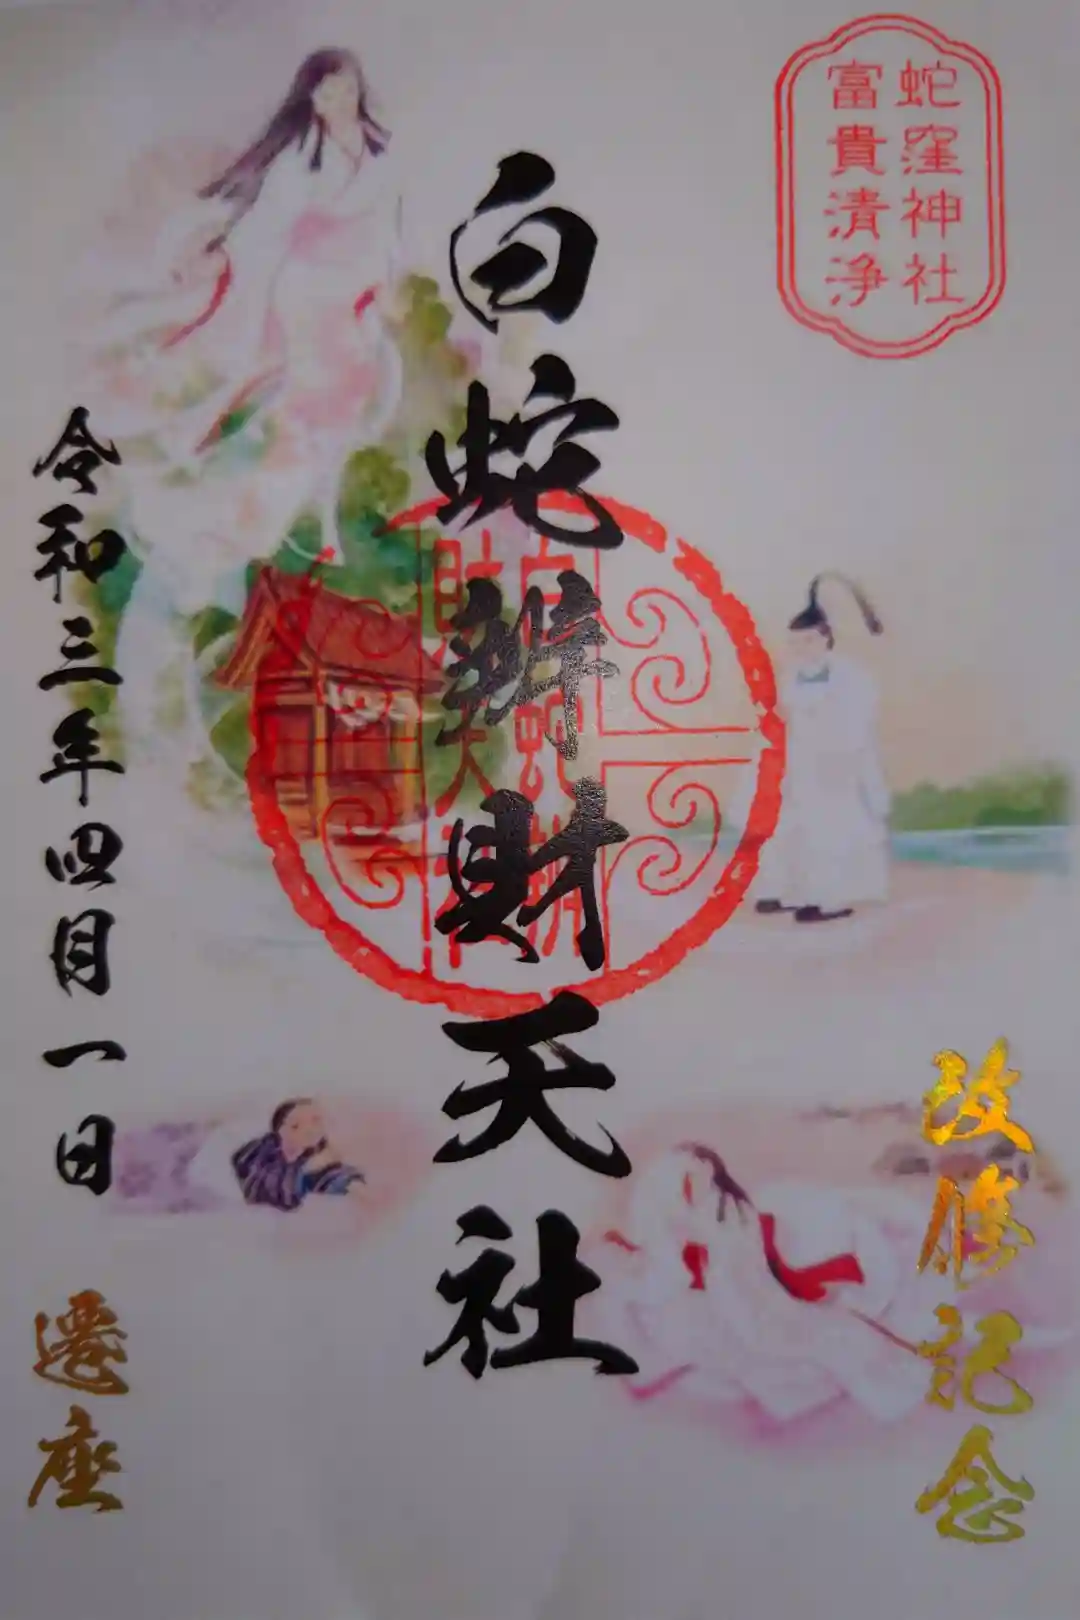 蛇窪神社
富貴清浄
改修記念
白蛇辨財天社
白蛇辨
財天社
令和三年四月一日
遷座